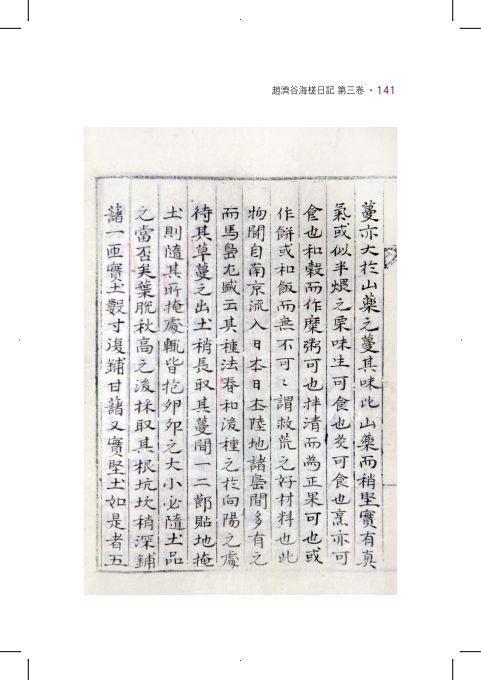 趙濟谷海槎日記 第三卷 • 141
蔓亦大於山藥之蔓其味比山藥而稍堅實有真
氣或似半煨之栗味生可食也炙可食也烹亦可
食也和穀而作糜粥可也拌清而為正果可也或
作餠或和飯而無不可〻謂救荒之好材料也此
物聞自南京流入日本日本陸地諸島間多有之
而馬島尤盛云其種法春和後種之於向陽之處
待其草蔓之出土稍長取其蔓間一二節貼地掩
土則隨其所掩處輒皆抱卵卵之大小必隨土品
之當否矣葉脫秋高之後採取其根坑坎稍深鋪
藷一匝實土數寸復鋪甘藷又實堅土如是者五